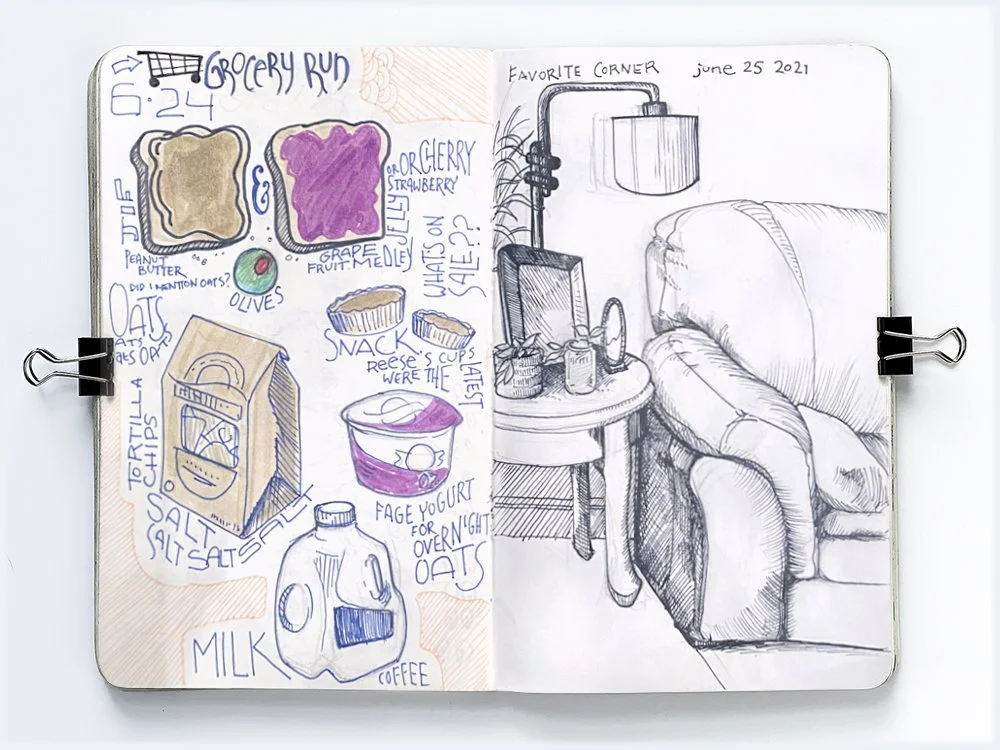 GROCERY RUN
6·24
JIF
PEANUT
BUTTER
&
OR OR CHERRY
STRAWBERRY
GRAPE JELLY
FRUIT MEDLEY
WHAT'S ON
SALE??
DID I MENTION OATS?
OLIVES
OATS
OATS
SNACK
REESE'S CUPS
WERE THE LATEST
TORTILLA
CHIPS
SALT
SALT SALT SALT
FAGE YOGURT
FOR
OVERNIGHT
OATS
MILK
COFFEE
FAVORITE CORNER
june 25 2021